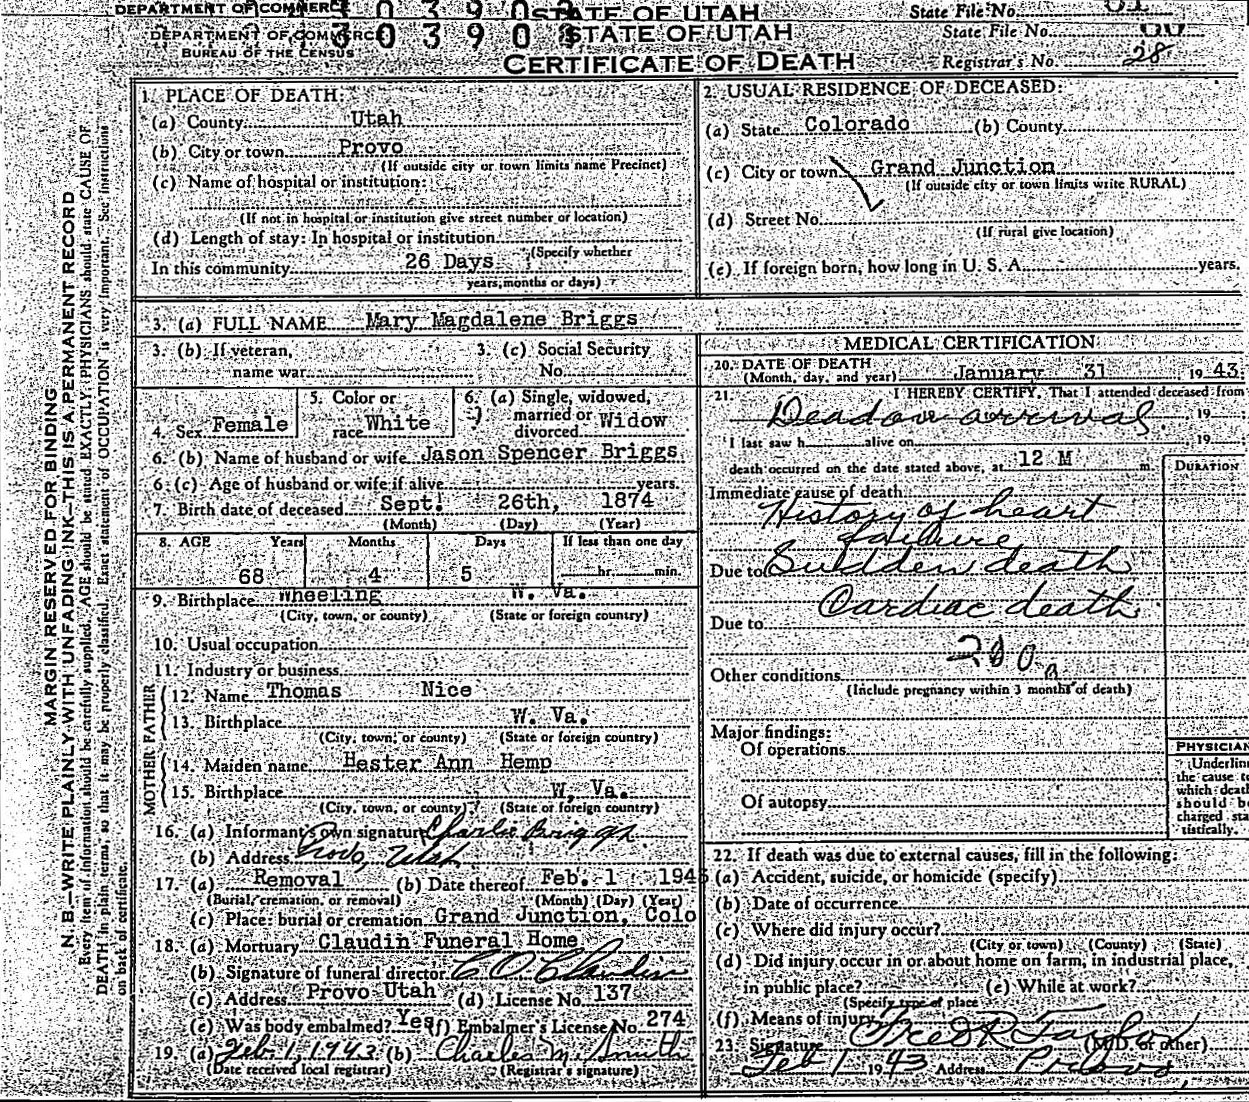 DEPARTMENT OF COMMERCE STATE OF UTAH State File No.
DEPARTMENT OF COMMERCE 3 0 3 9 0 STATE OF UTAH State File No. 60
BUREAU OF THE CENSUS CERTIFICATE OF DEATH Registrar's No. 28
MARGIN RESERVED FOR BINDING
N. B.—WRITE PLAINLY WITH UNFADING INK—THIS IS A PERMANENT RECORD
Every item of information should be carefully supplied. AGE should be stated EXACTLY. PHYSICIANS should state CAUSE OF
DEATH in plain terms, so that it may be properly classified. Exact statement of OCCUPATION is very important. See instructions
on back of certificate.
1. PLACE OF DEATH:
(a) County Utah
(b) City or town Provo
(If outside city or town limits name Precinct)
(c) Name of hospital or institution:
(If not in hospital or institution give street number or location)
(d) Length of stay: In hospital or institution
(Specify whether
In this community 26 Days
years, months or days)
2. USUAL RESIDENCE OF DECEASED:
(a) State Colorado (b) County
(c) City or town Grand Junction
(If outside city or town limits write RURAL)
(d) Street No.
(If rural give location)
(e) If foreign born, how long in U. S. A. years.
3. (a) FULL NAME Mary Magdalene Briggs
3. (b) If veteran, 3. (c) Social Security
name war No.
4. Sex Female 5. Color or race White 6. (a) Single, widowed, married or divorced Widow
6. (b) Name of husband or wife Jason Spencer Briggs
6. (c) Age of husband or wife if alive years.
7. Birth date of deceased Sept. 26th, 1874
(Month) (Day) (Year)
8. AGE Years Months Days If less than one day
68 4 5 hr. min.
9. Birthplace Wheeling W. Va.
(City, town, or county) (State or foreign country)
10. Usual occupation
11. Industry or business
FATHER
12. Name Thomas Nice
13. Birthplace W. Va.
(City, town, or county) (State or foreign country)
MOTHER
14. Maiden name Hester Ann Hemp
15. Birthplace W. Va.
(City, town, or county) (State or foreign country)
16. (a) Informant's own signature Charlie Briggs
(b) Address Provo, Utah
17. (a) Removal (b) Date thereof Feb. 1 1943
(Burial, cremation, or removal) (Month) (Day) (Year)
(c) Place: burial or cremation Grand Junction, Colo
18. (a) Mortuary Claudin Funeral Home
(b) Signature of funeral director C O Claudin
(c) Address Provo Utah (d) License No. 137
(e) Was body embalmed? Yes (f) Embalmer's License No. 274
19. (a) Feb. 1, 1943 (b) Charles M. Smith
(Date received local registrar) (Registrar's signature)
MEDICAL CERTIFICATION
20. DATE OF DEATH
(Month, day, and year) January 31 1943
21. I HEREBY CERTIFY, That I attended deceased from
Dead on arrival 19
I last saw h alive on 19
death occurred on the date stated above, at 12 M m. DURATION
Immediate cause of death
History of heart
failure
Due to Sudden death
Cardiac death
Due to
Other conditions
(Include pregnancy within 3 months of death)
Major findings:
Of operations
Of autopsy
PHYSICIAN
Underline
the cause to
which death
should be
charged sta-
tistically.
22. If death was due to external causes, fill in the following:
(a) Accident, suicide, or homicide (specify)
(b) Date of occurrence
(c) Where did injury occur?
(City or town) (County) (State)
(d) Did injury occur in or about home on farm, in industrial place,
in public place? (e) While at work?
(Specify type of place
(f) Means of injury
23. Signature Fred R Taylor (M.D. or other)
Feb 1 1943 Address Provo,